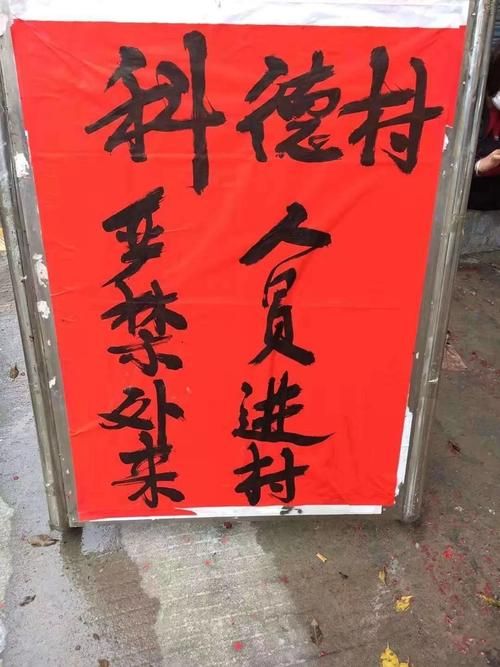 科德村
严禁处来
人员进村